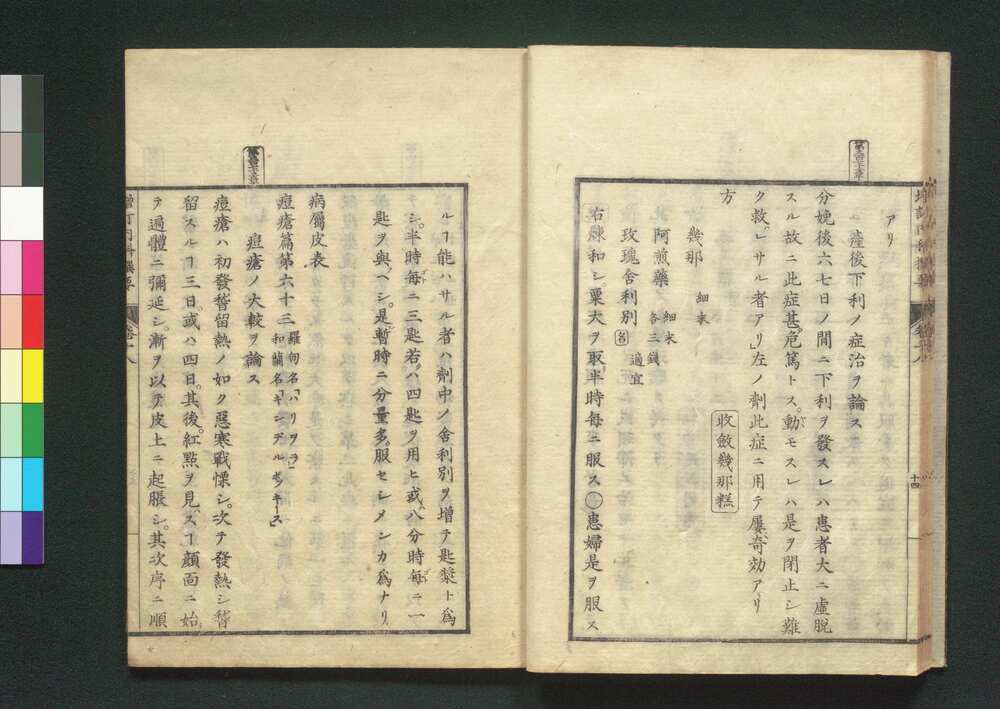 アリ
産後下利ノ症治ヲ論ス
分娩後六七日ノ間ニ下利ヲ發スレハ患者大ニ虛脱
スル故ニ此症甚危篤トス動モスレハ是ヲ閉止シ難
ク救ヒサル者アリ左ノ劑此症ニ用テ屢奇効アリ
方
收斂幾那糕
幾那 細末
阿煎藥 細末 各三錢
玫瑰舍利別 名 適宜
右煉和シ粟大ヲ取半時每ニ服ス○患婦是ヲ服ス
十四
ルヿ能ハサル者ハ劑中ノ舍利別ヲ增テ匙漿ト爲
シ半時每ニ三匙若ハ四匙ヲ用ヒ或ハ八分時每ニ一
匙ヲ與ヘシ是暫時ニ分量多服セシメンカ爲ナリ
病屬皮表
痘瘡篇第六十三 羅甸名「ハリヲラ」 和蘭名「キンデルポッキース」
痘瘡ノ大較ヲ論ス
痘瘡ハ初發稽留熱ノ如ク惡寒戰慄シ次テ發熱シ稽
留スルヿ三日或ハ四日其後紅點ヲ見スヿ顔面ニ始
ヲ遍體ニ彌延シ漸ヲ以テ皮上ニ起脹シ其次序ニ順
增訂內科撰要 卷十八